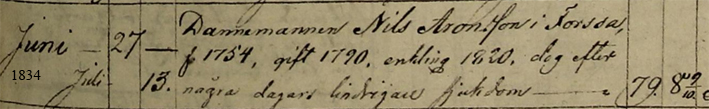 Juni — 27 — Dannemannen Nils Aronsson i Forssa,
f 1754, gift 1790, enkling 1820, dog efter
1834 Juli - 13. några dagars lindrigare sjukdom — 79. 8